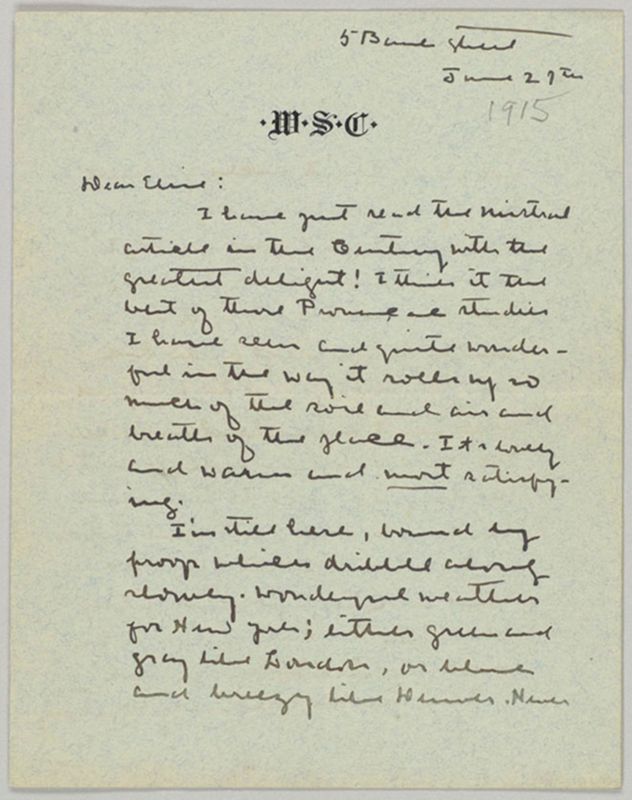 5 Bank Street
June 27th
1915
·W·S·C·
Dear Elsie:
I have just read the Mistral
article in the Century with the
greatest delight! I think it the
best of those Provençal studies
I have seen and quite wonder-
ful in the way it rolls up so
much of the soil and air and
breath of the place. It's lovely
and warm and most satisfy-
ing.
I'm still here, bound by
proofs which dribble along
slowly. Wonderful weather
for New York; either green and
gray like London, or blue
and breezy like Denver. Never